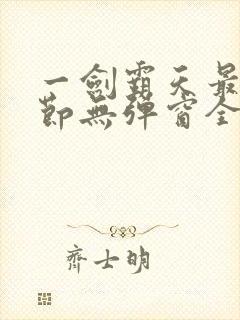 一劍霸天最
節無彈窗全
齊士明